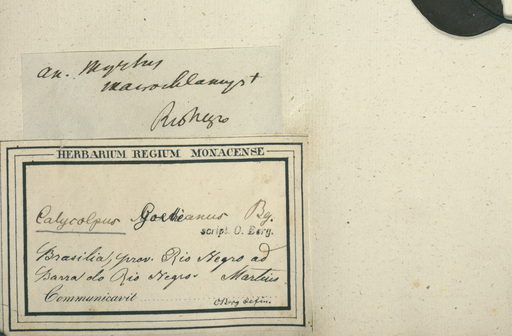 an. Myrtus
macrochlamys +
Rio Negro
HERBARIUM REGIUM MONACENSE
Calycolpus Goetheanus Bg.
script. O. Berg.
Brasilia, prov. Rio Negro ad
Barra do Rio Negro. Martius
Communicavit
OBerg defin.